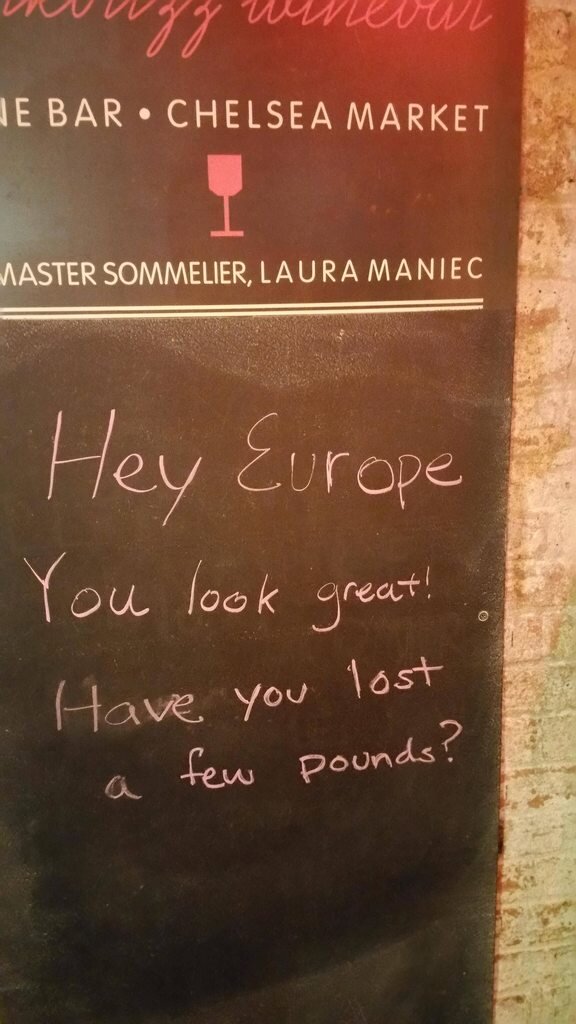 winebar
BAR • CHELSEA MARKET
MASTER SOMMELIER, LAURA MANIEC
Hey Europe
You look great!
Have you lost
a few pounds?